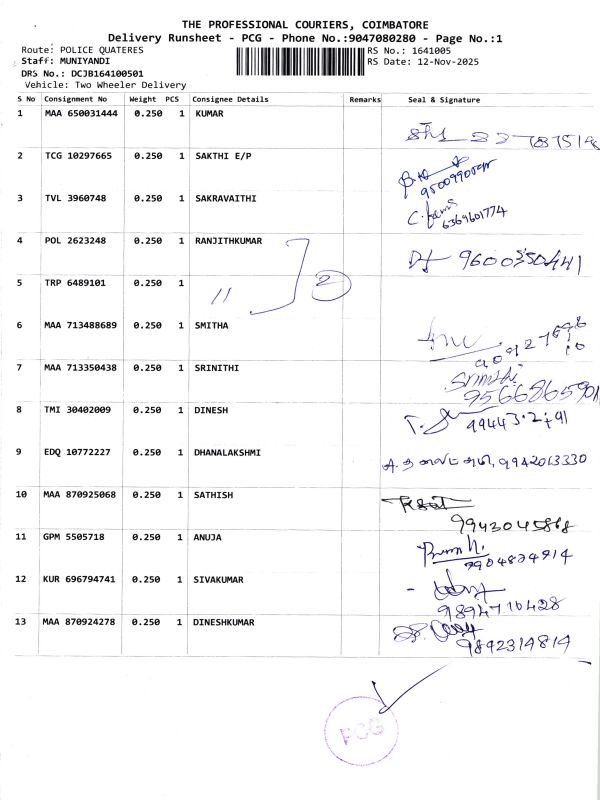 THE PROFESSIONAL COURIERS, COIMBATORE
Delivery Runsheet - PCG - Phone No.:9047080280 - Page No.:1
Route: POLICE QUATERES RS No.: 1641005
Staff: MUNIYANDI RS Date: 12-Nov-2025
DRS No.: DCJB164100501
Vehicle: Two Wheeler Delivery
S No Consignment No Weight PCS Consignee Details Remarks Seal & Signature
1 MAA 650031444 0.250 1 KUMAR
2 TCG 10297665 0.250 1 SAKTHI E/P
3 TVL 3960748 0.250 1 SAKRAVAITHI
6369601774
4 POL 2623248 0.250 1 RANJITHKUMAR
5 TRP 6489101 0.250 1 // 2
6 MAA 713488689 0.250 1 SMITHA
7 MAA 713350438 0.250 1 SRINITHI Srinithi
9566865901
8 TMI 30402009 0.250 1 DINESH
9 EDQ 10772227 0.250 1 DHANALAKSHMI 9942013330
10 MAA 870925068 0.250 1 SATHISH
9943045868
11 GPM 5505718 0.250 1 ANUJA
7904834914
12 KUR 696794741 0.250 1 SIVAKUMAR
9894710428
13 MAA 870924278 0.250 1 DINESHKUMAR
9892314814
PCG